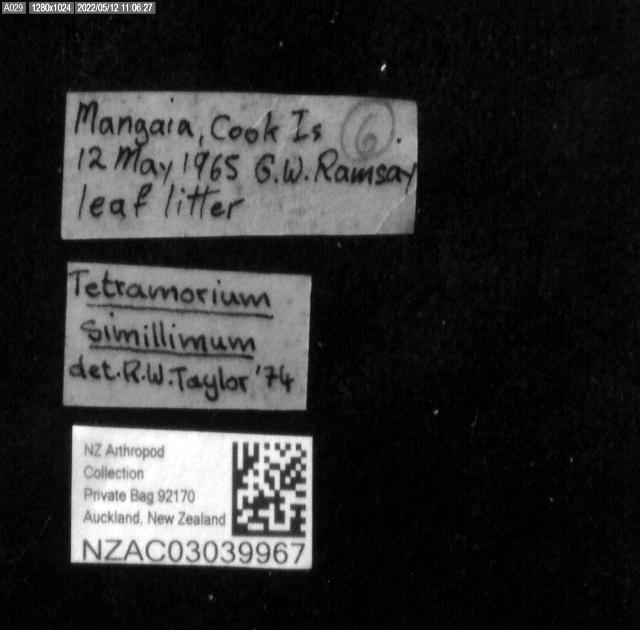 A029 1280x1024 2022/05/12 11:06:27
Mangaia, Cook Is 6.
12 May 1965 G.W. Ramsay
leaf litter
Tetramorium
simillimum
det. R.W. Taylor '74
NZ Arthropod
Collection
Private Bag 92170
Auckland, New Zealand
NZAC03039967